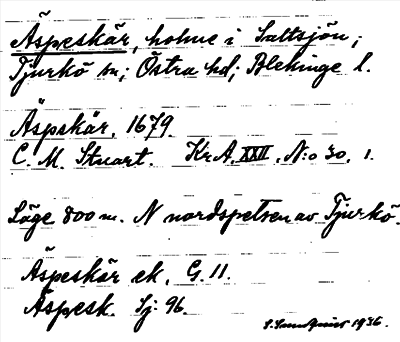 Äspeskär, holme i Saltsjön;
Tjurkö sn; Östra hd; Blekinge l.
Äspskär, 1679.
C. M. Stuart. Kr A, XXII, N:o 30, 1.
Läge 800 m. N nordspetsen av Tjurkö.
Äspeskär ek. G. 11.
Äspesk. Sj: 96.
1936.